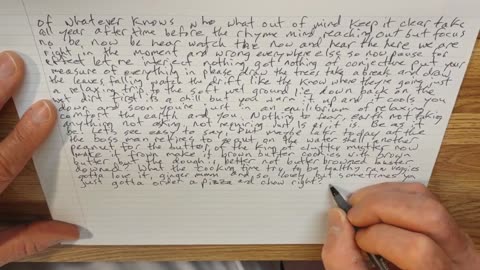 of whatever knows who what out of mind keep it clear take
all year after time before the rhyme mind reaching out but focus
no be now be hear watch the now and hear the here we are
right in the moment and wrong everywhere else so now pause for
effect let me interject nothing got nothing of conjective put your
measure of everything in please draw the trees take a break and
the leaves falling catch the drift like the know where they're going just
a relaxing trip to the soft wet ground lie down back in the
dirt first its a chill but you warm it up and it cools you
down, and soon you're in an equilibrium of relaxing
comfort the earth and you. Nothing to fear, earth not taking
anything not needing, not requiring just as it is. Be as it
be. let's see easy to say, but maybe later today at the
the boss man relies to put on the water shell another
peanut for the butter of the king of clutter mutter now
make it from make it brown butter cookies with brown
butter above the dough is better not butter browned
downed. What the cooking time try to by healthy raw veggies
gotta love it, ginger mom and so lovely but sometimes you
just gotta order a pizza and chow right?